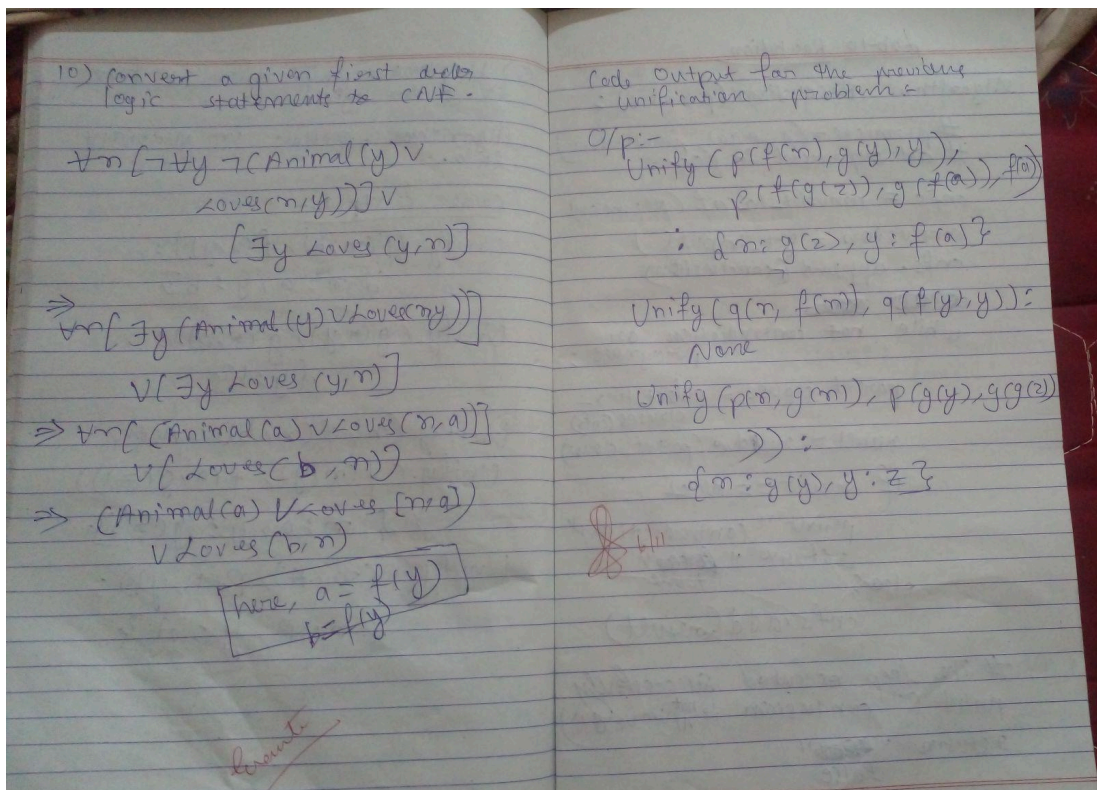 10) Convert a given first order
logic statements to CNF.
∀n [¬∀y ¬(Animal(y) ∨
Loves(n,y))] ∨
[∃y Loves (y,n)]
⇒
∀n[∃y (Animal(y) ∨ Loves(ny))]
∨[∃y Loves (y,n)]
⇒ ∀n[(Animal(a) ∨ Loves(n,a))]
∨[Loves(b,n)]
⇒ (Animal(a) ∨ Loves[n,a])
∨ Loves(b,n)
here, a = f(y)
b=f(y)
Code Output for the previous
unification problem :
O/p:-
Unify (p(f(n), g(y), y),
p(f(g(z)), g(f(a)), f(a))
: {n: g(z), y: f(a)}
Unify (q(n, f(n)), q(f(y), y)):
None
Unify (p(n, g(n)), p(g(y), g(g(z))
)) :
{n : g(y), y : z}
6/11